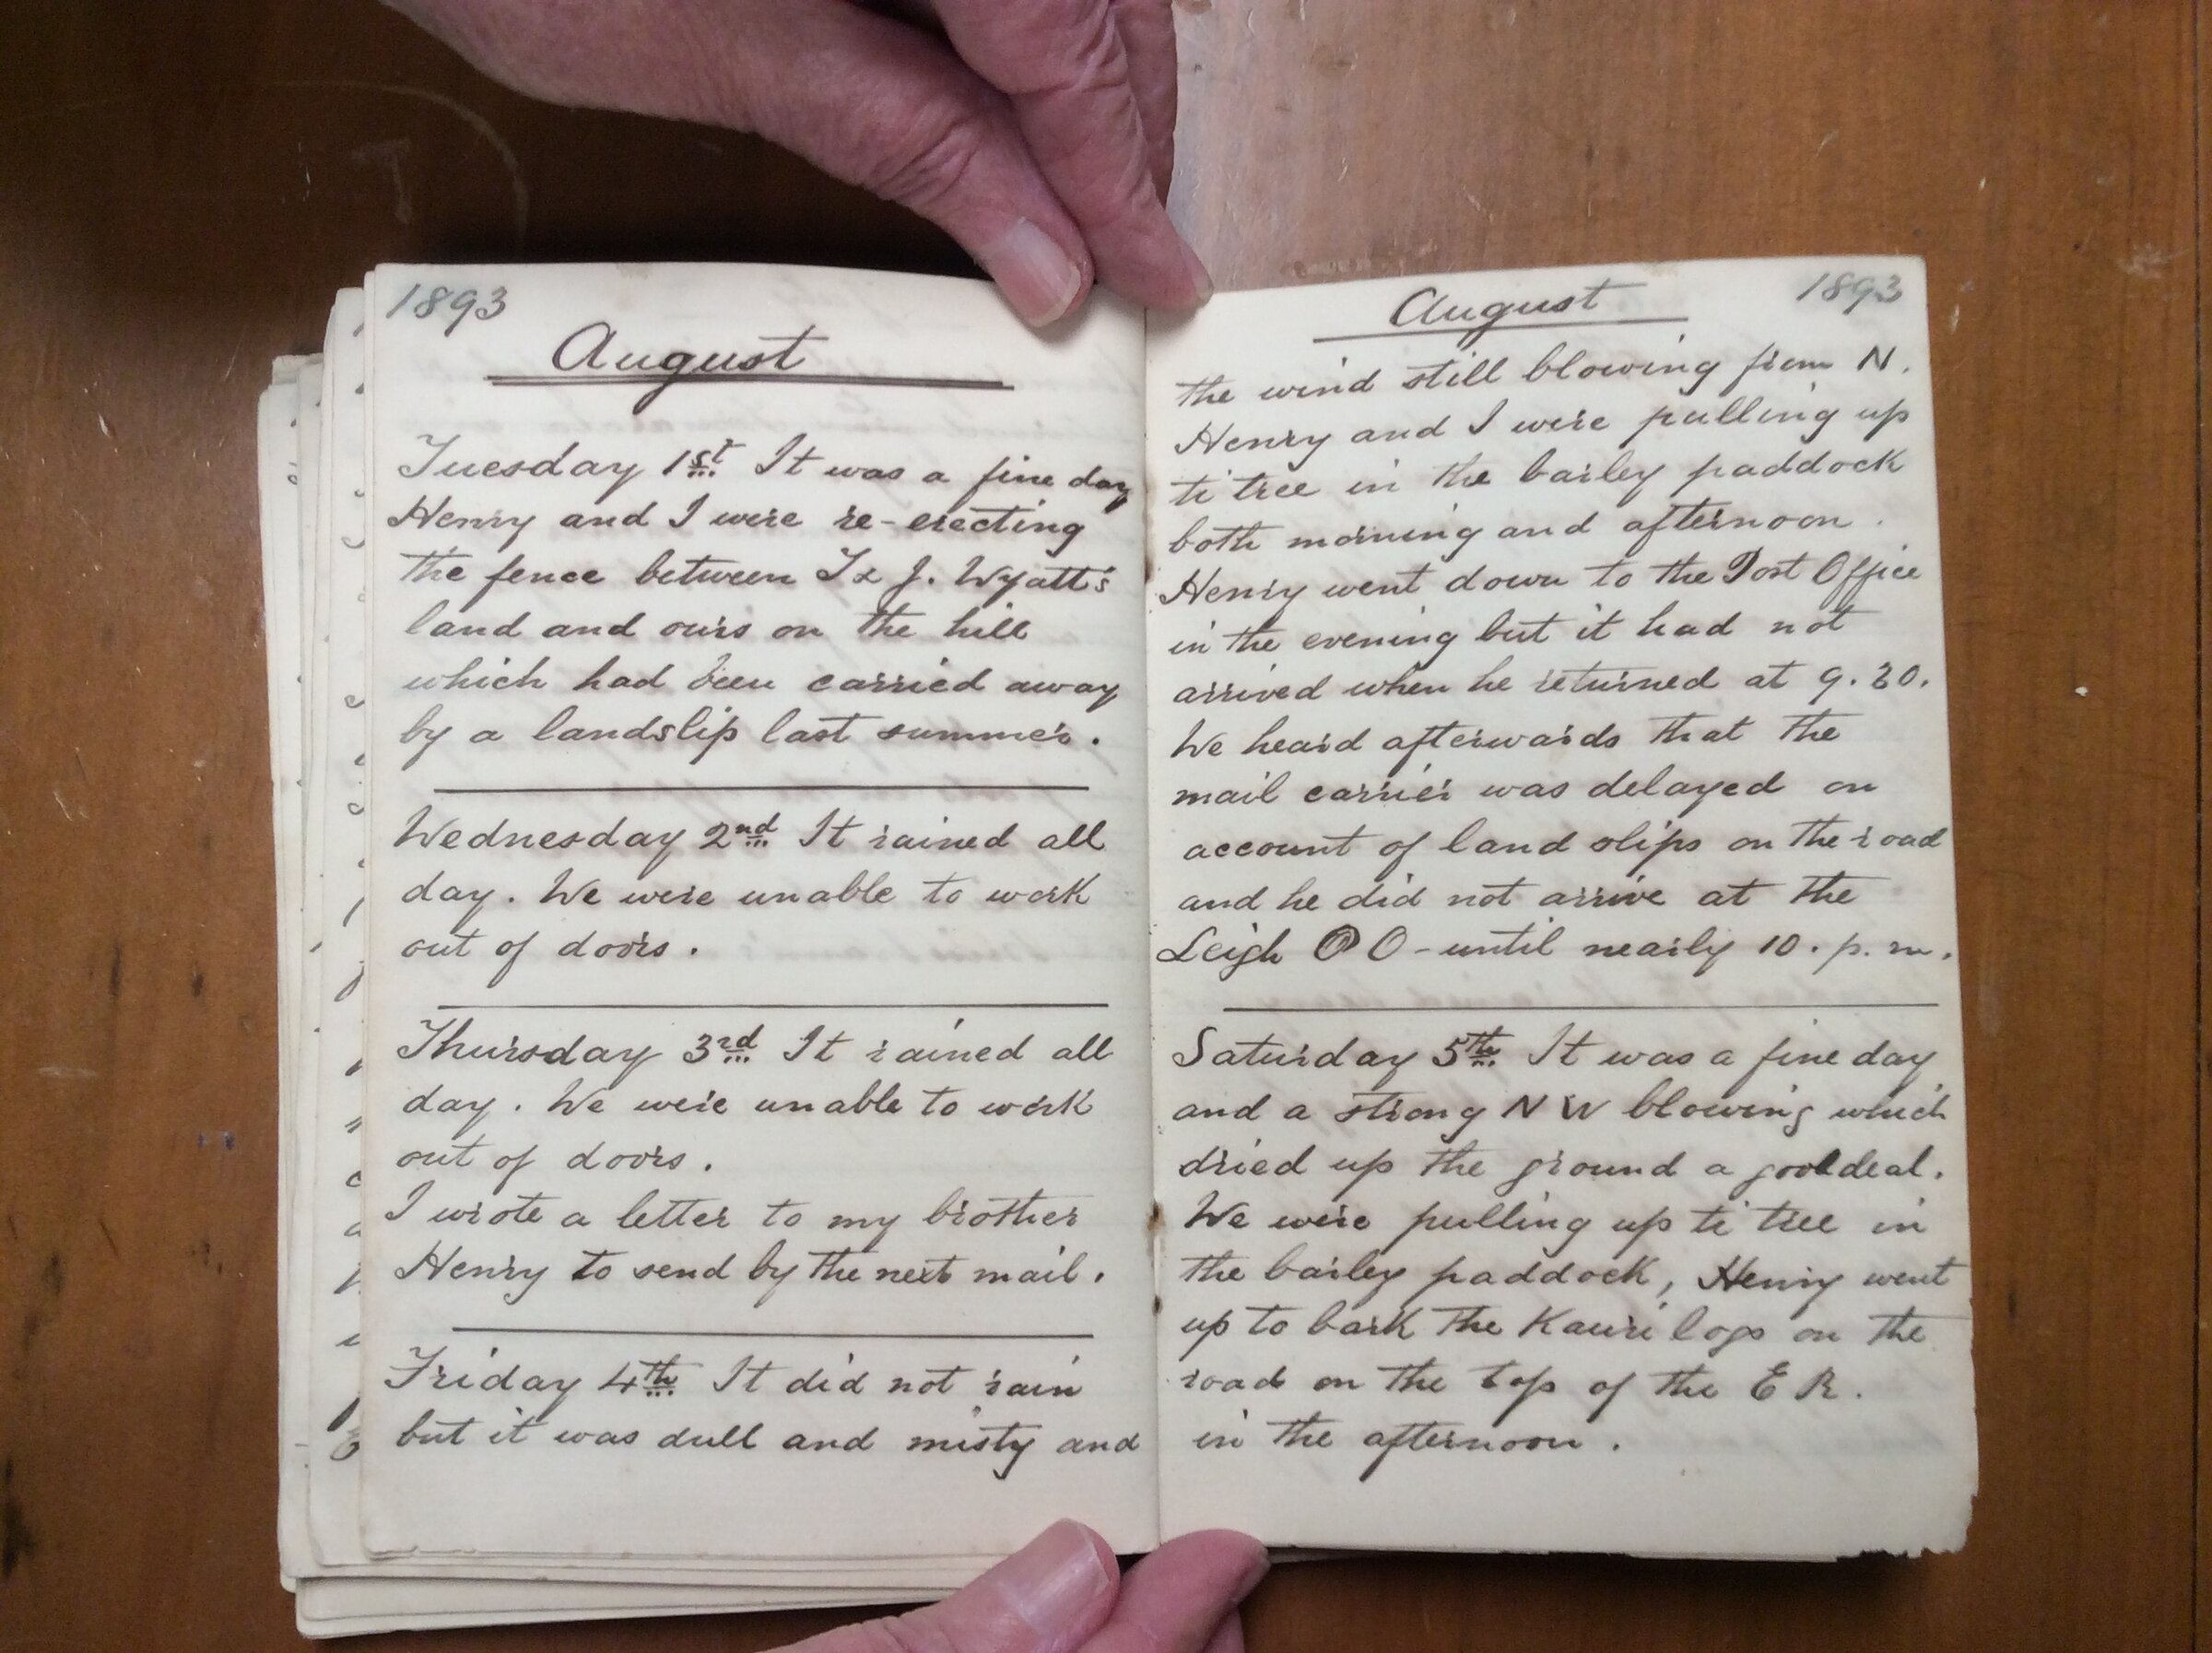 1893
August
Tuesday 1st It was a fine day
Henry and I were re-erecting
the fence between I & J. Wyatt's
land and ours on the hill
which had been carried away
by a landslip last summer.
Wednesday 2nd It rained all
day. We were unable to work
out of doors.
Thursday 3rd It rained all
day. We were unable to work
out of doors.
I wrote a letter to my brother
Henry to send by the next mail.
Friday 4th It did not rain
but it was dull and misty and
August 1893
the wind still blowing from N.
Henry and I were pulling up
ti tree in the barley paddock
both morning and afternoon.
Henry went down to the Post Office
in the evening but it had not
arrived when he returned at 9.30.
We heard afterwards that the
mail carrier was delayed on
account of land slips on the road
and he did not arrive at the
Leigh P O - until nearly 10. p. m.
Saturday 5th It was a fine day
and a strong N W blowing which
dried up the ground a good deal.
We were pulling up ti tree in
the barley paddock, Henry went
up to bark the Kauri logs on the
road on the top of the E R.
in the afternoon.